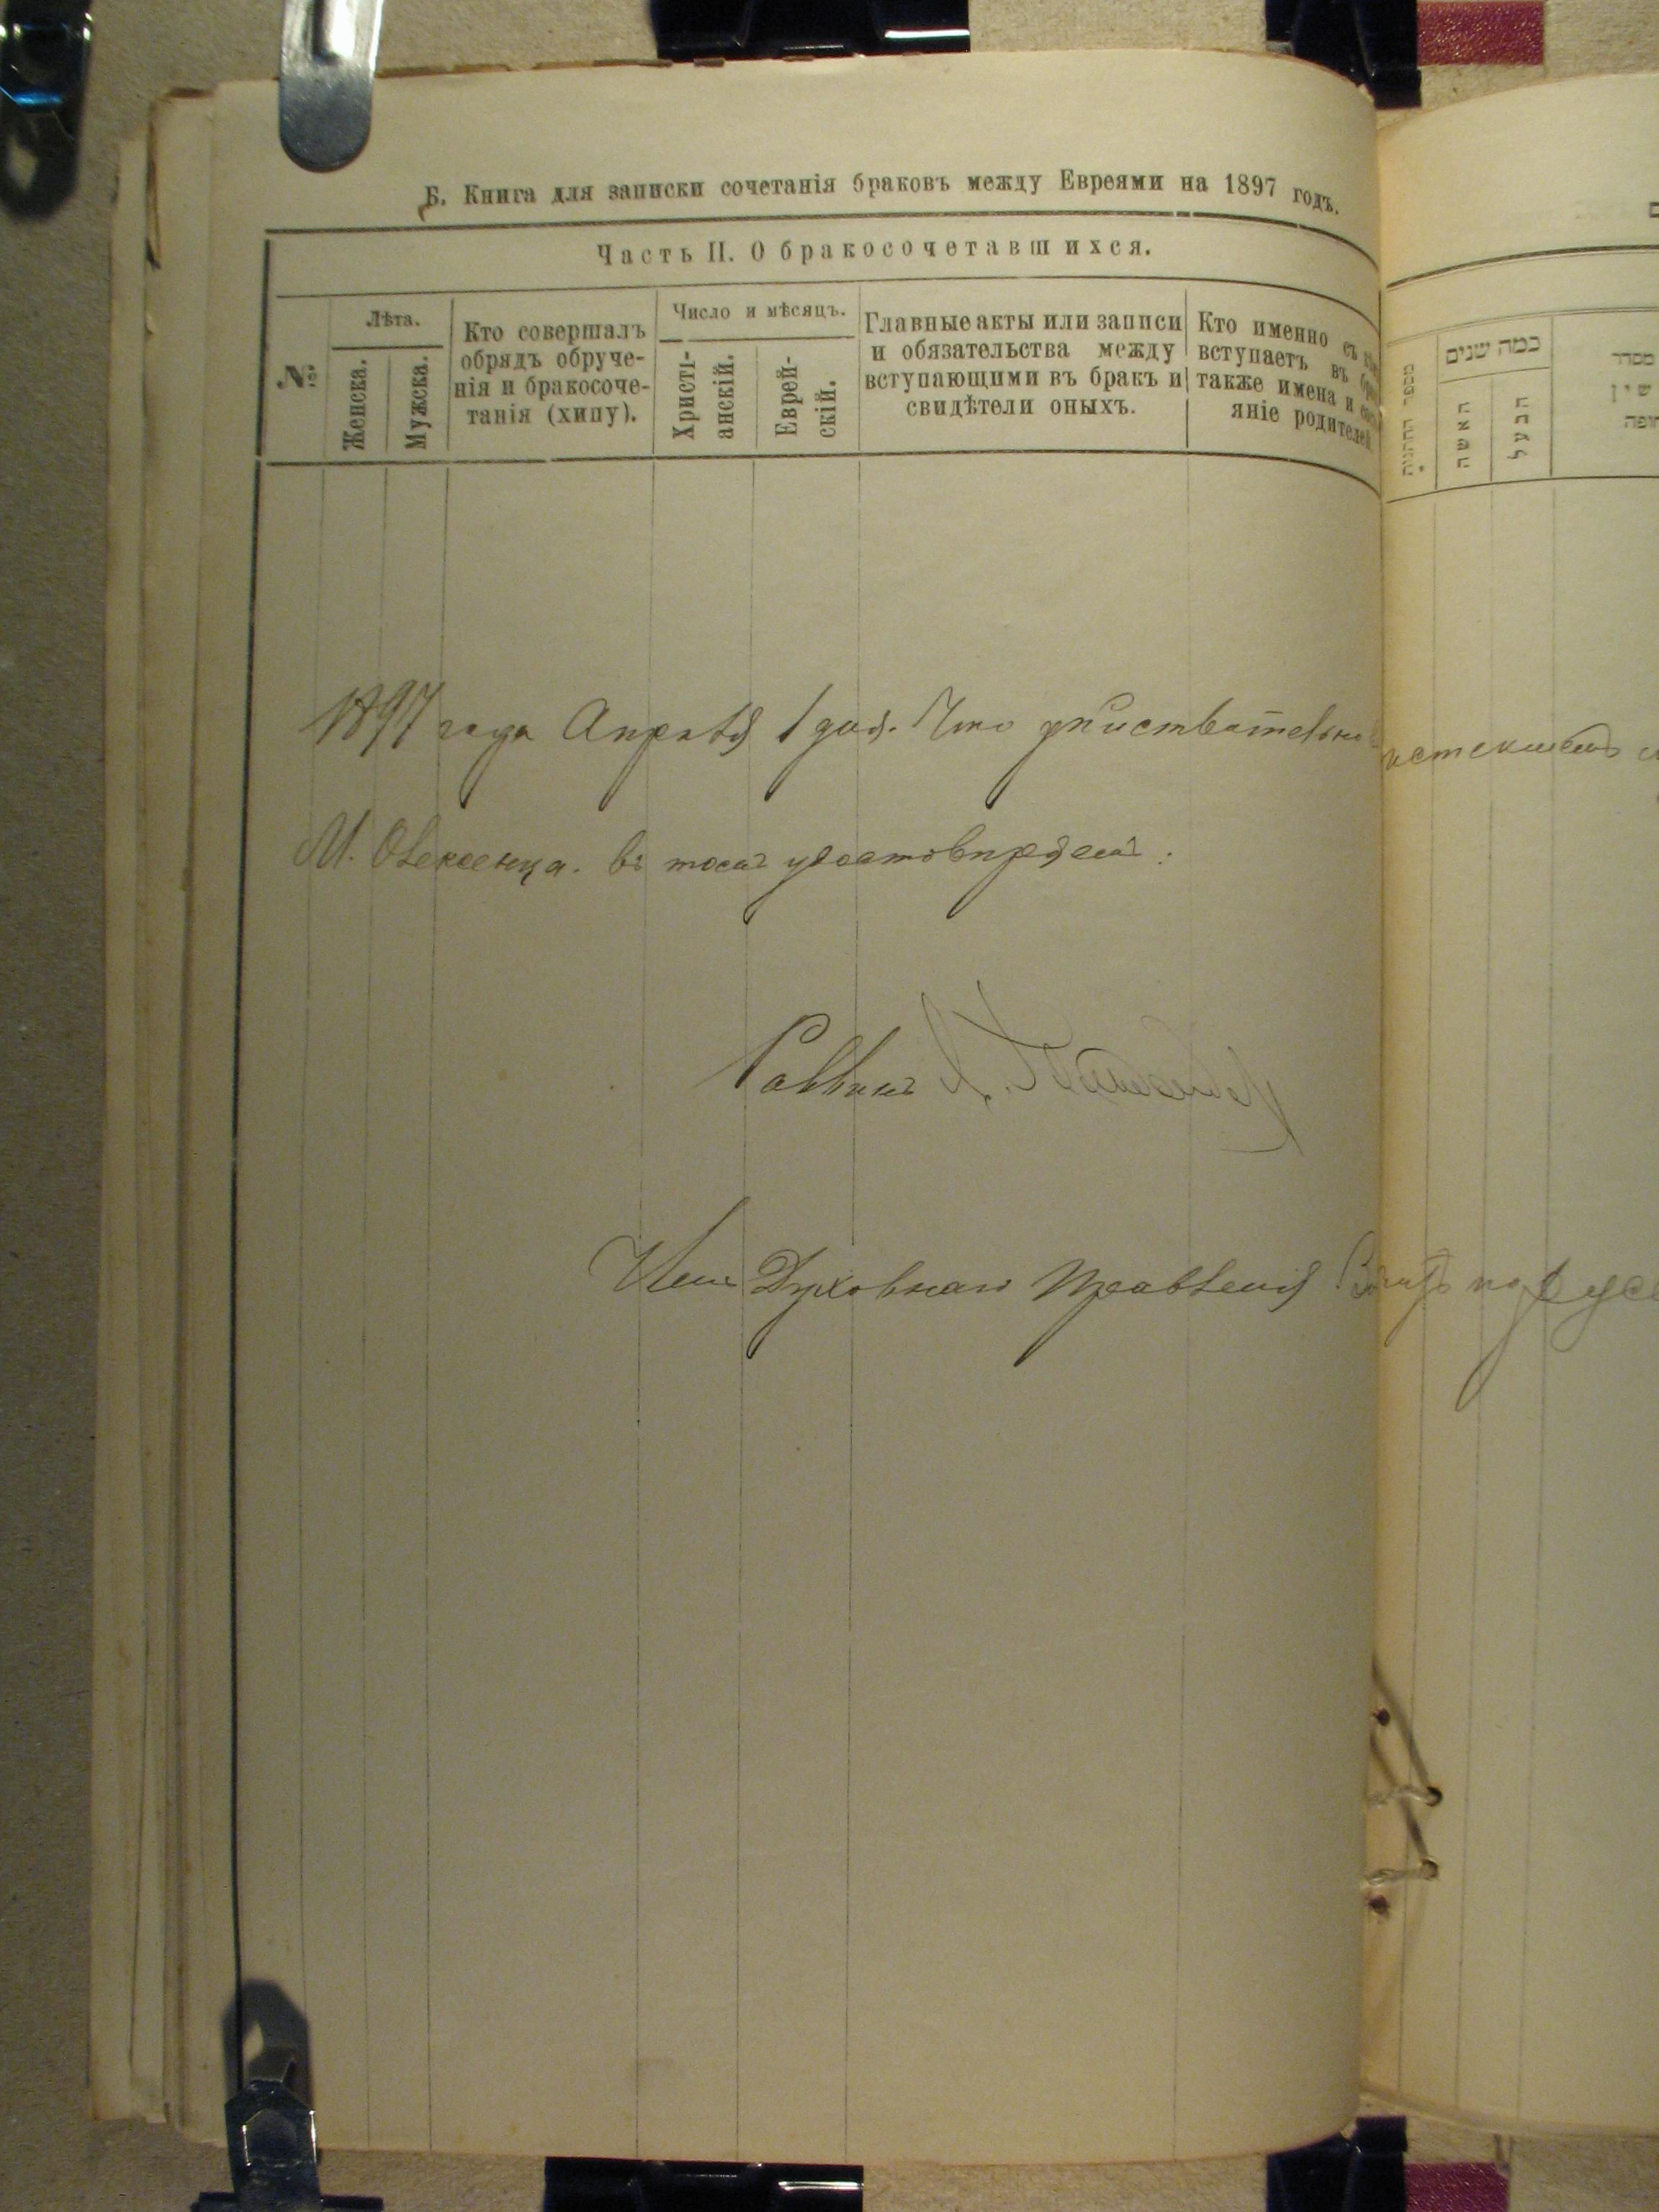 Б. Книга для записки сочетанія браковъ между Евреями на 1897 годъ.
Часть II. О бракосочетавшихся.
№
Лѣта.
Женска.
Мужска.
Кто совершалъ
обрядъ обруче-
нія и бракосоче-
танія (хипу).
Число и мѣсяцъ.
Христі-
анскій.
Еврей-
скій.
Главные акты или записи
и обязательства между
вступающими въ бракъ и
свидѣтели оныхъ.
Кто именно съ
вступаетъ въ
также имена и
яніе родителей
מספר
כמה שנים
האשה
הבעל
מסדר
1897 года Апрѣля 1 дня. Что дѣйствительно истекшемъ
М. въ томъ удостовѣряемъ:
Раввинъ
Члены Духовнаго Правленія